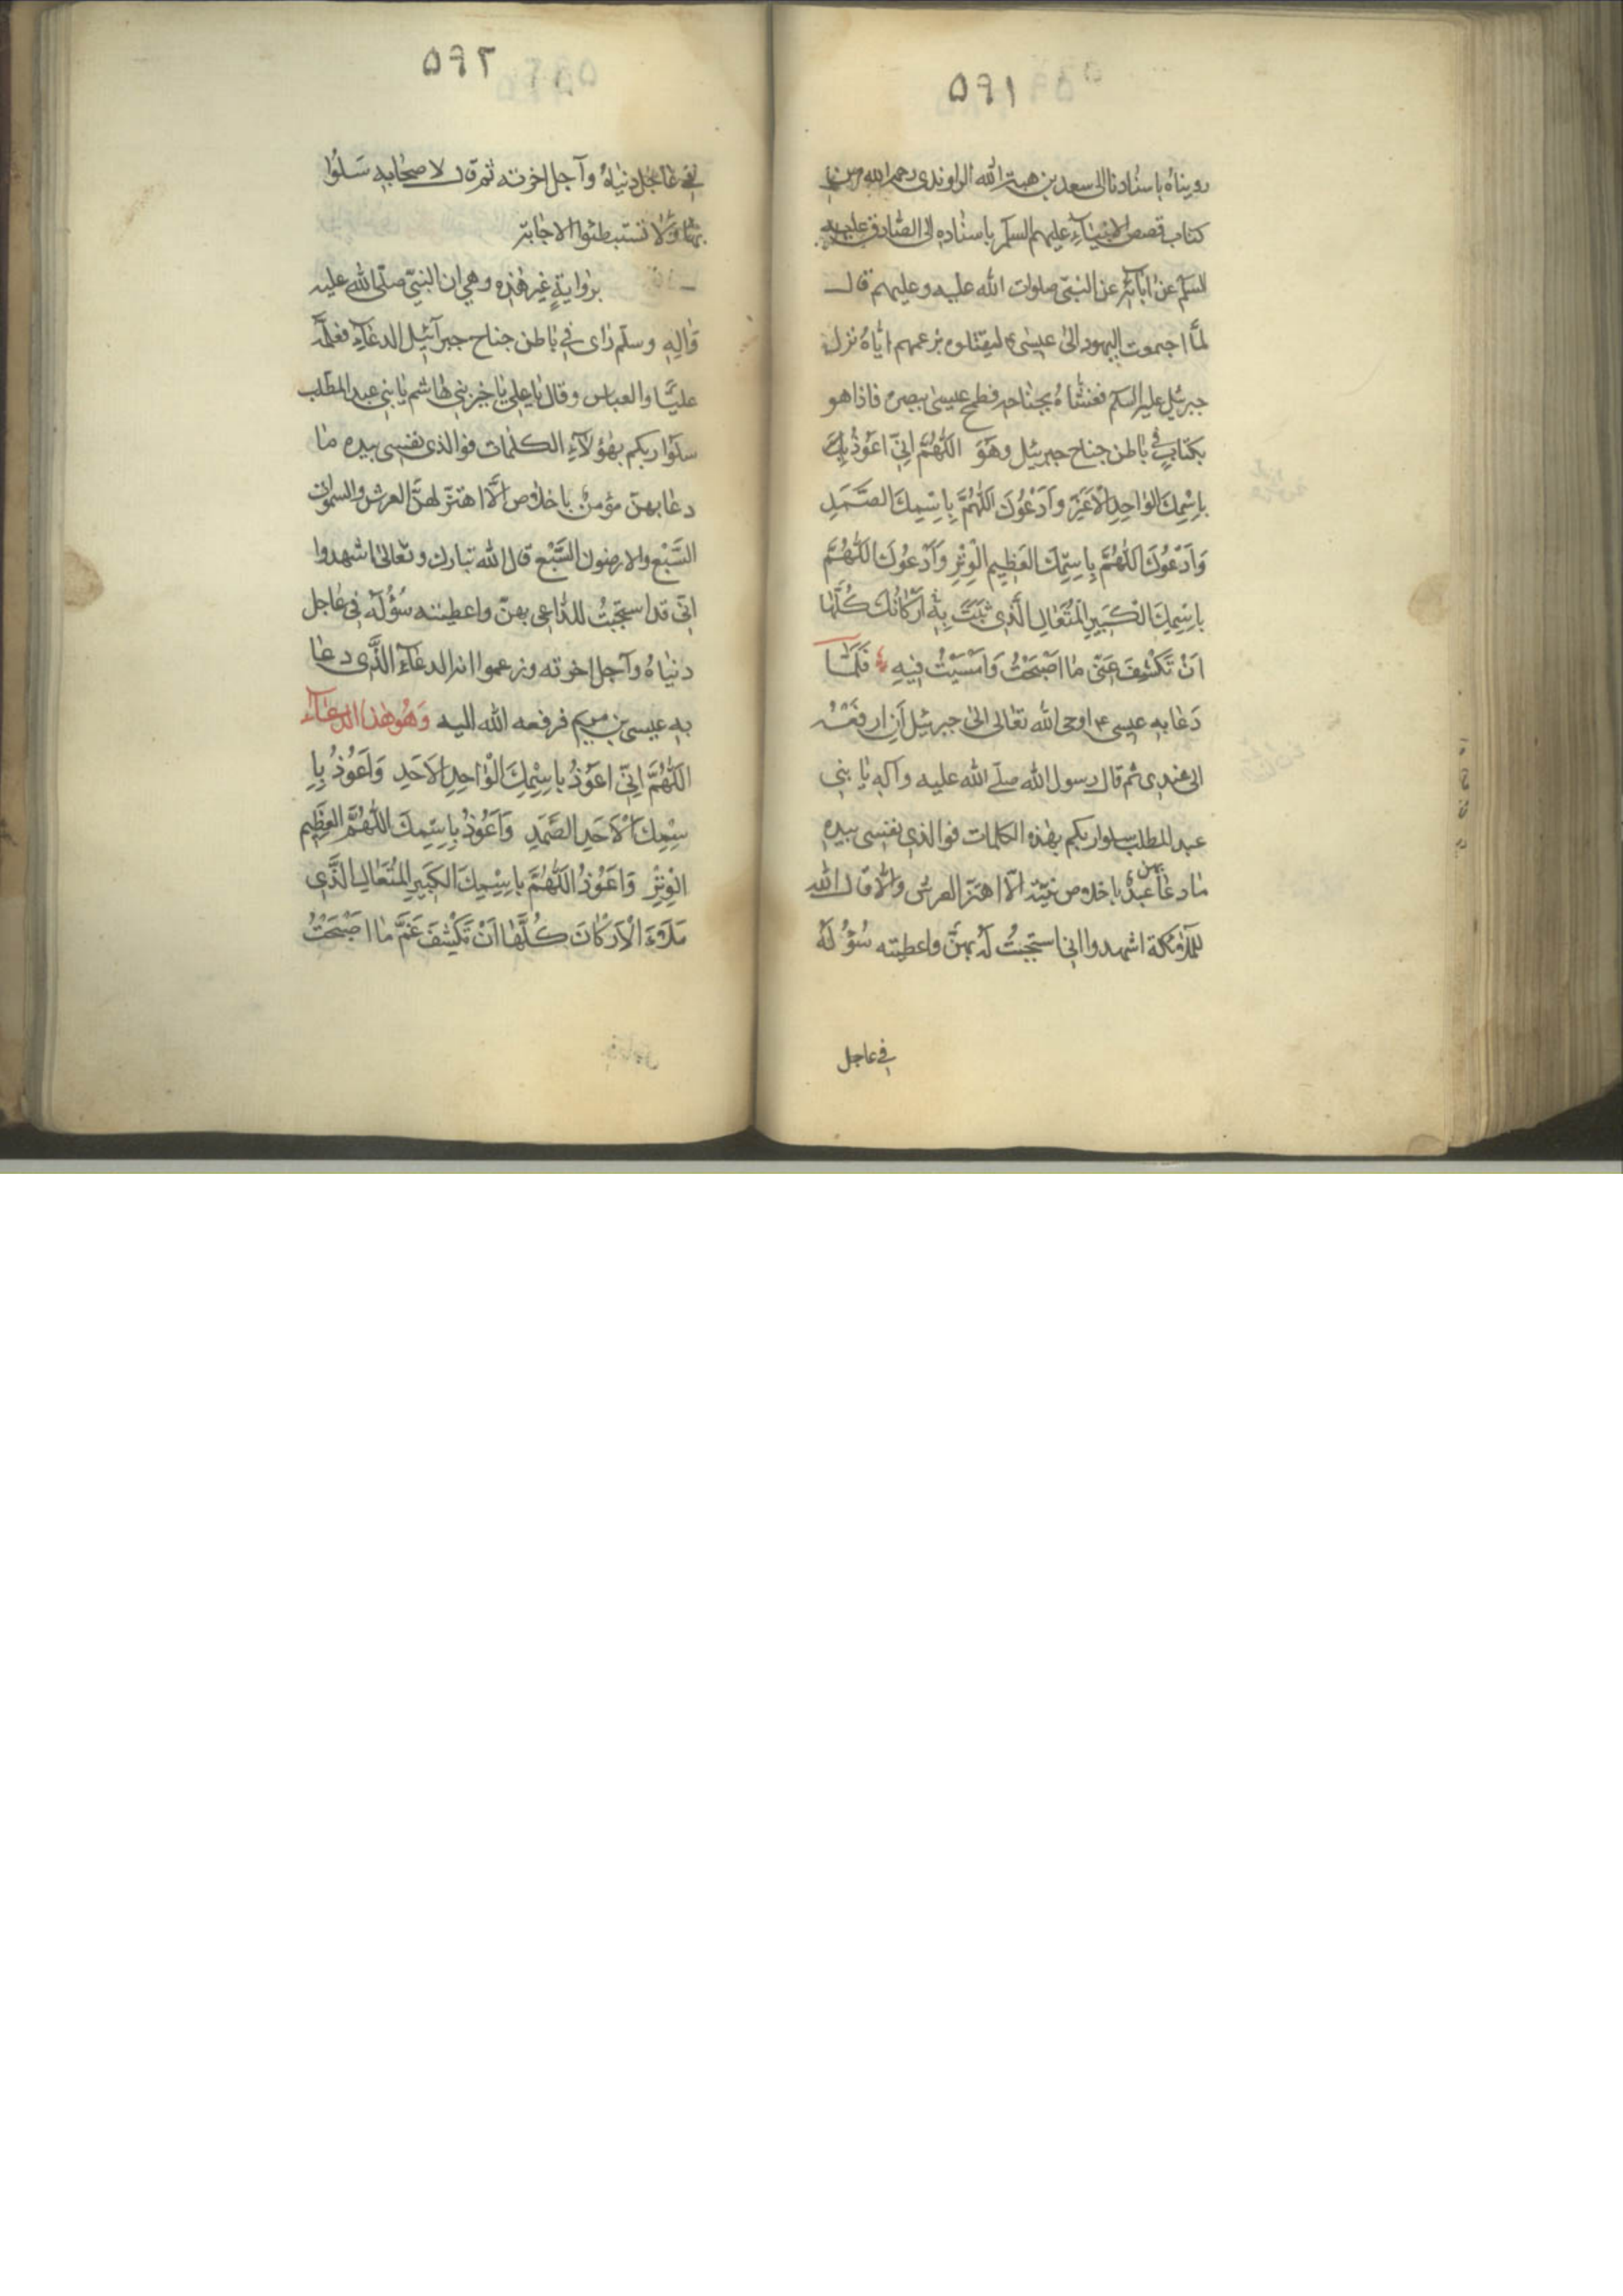 ٥٩١
رويناه باسنادنا الى سعد بن هبة الله الراوندى رحمه الله من
كتاب قصص الانبياء عليهم السلم باسناده الى الصادق عليه
السلم عن ابائه عن النبى صلوات الله عليه وعليهم قال
لما اجتمعت اليهود الى عيسى ع ليقتلوه بزعمهم اياه نزل
جبرئيل عليه السلم فغشاه بجناحه فطمح عيسى ببصره فاذا هو
بكتاب فى باطن جناح جبرئيل وهو اَللّٰهُمَّ اِنّى اَعُوذُ بِكَ
بِاسْمِكَ الْوٰاحِدِ الْاَعَزِّ وَاَدْعُوكَ اَللّٰهُمَّ بِاسْمِكَ الصَّمَدِ
وَاَدْعُوكَ اللّٰهُمَّ بِاسْمِكَ الْعَظِيمِ الْوِتْرِ وَاَدْعُوكَ اللّٰهُمَّ
بِاسْمِكَ الْكَبِيرِ الْمُتَعٰالِ الَّذى ثَبَتَ بِهِ اَرْكٰانُكَ كُلُّهٰا
اَنْ تَكْشِفَ عَنّى مٰا اَصْبَحْتُ وَاَمْسَيْتُ فِيهِ فَلَمّٰا
دَعٰا به عيسى ع اوحى الله تعالى الى جبرئيل اَنِ ارفَعْهُ
الى عندى ثم قال رسول الله صلى الله عليه وآله يا بنى
عبد المطلب سلوا ربكم بهذه الكلمات فوالذى نفسى بيده
ما دعا بهن عبدٌ باخلاص نيته الّا اهتز العرش والّا قال الله
للملائكة اشهدوا انى استجبتُ لهُ بهنَّ واعطيته سُؤْلَهُ
فى عاجل
٥٩٢
فى عاجل دنياهُ وآجل اخرته ثم قال لاصحابه سَلُوا
بها وَلا تستبطئوا الاجابة
بروايةٍ غير هذه وهى ان النبىّ صلّى الله عليه
وَالِهِ وسلّم راى فى باطن جناح جبرآئيل الدعآء فعلّمه
عليًّا والعباس وقال يا على يا خير بنى هاشم يا بنى عبد المطّلب
سلوا ربكم بهؤلآءِ الكلمات فوالذى نفسى بيده ما
دعا بهنّ مؤمنٌ باخلاص الَّا اهتزّ لهنَّ العرش والسموات
السَّبْع والارضون السَّبْع قال الله تبارك وتعالى اشهدوا
انّى قد استجبْتُ للدّاعى بهنّ واعطيته سُؤْلَهُ فى عاجل
دنياهُ وآجل اخرته وزعموا انه الدعآءُ الَّذى دعا
به عيسى بن مريم فرفعه الله اليه وَهُوَ هٰذا الدعآء
اَللّٰهُمَّ اِنّى اَعُوذُ بِاسْمِكَ الْوٰاحِدِ الْاَحَدِ وَاَعُوذُ بِا
سْمِكَ الْاَحَدِ الصَّمَدِ وَاَعُوذُ بِاسْمِكَ اللّٰهُمَّ الْعَظِيمِ
الْوِتْرِ وَاَعُوذُ اللّٰهُمَّ بِاسْمِكَ الْكَبِيرِ الْمُتَعٰالِ الَّذى
مَلَأَ الْاَرْكٰانَ كُلَّهٰا اَنْ تَكْشِفَ غَمَّ مٰا اَصْبَحْتُ